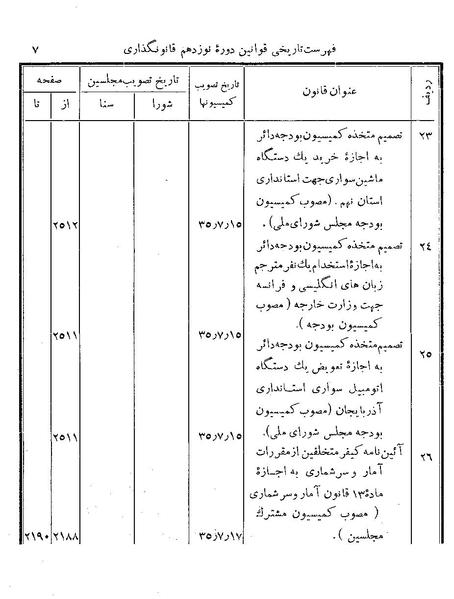 فهرست تاریخی قوانین دورهٔ نوزدهم قانونگذاری ۷
ردیف عنوان قانون تاریخ تصویب کمیسیونها تاریخ تصویب مجلسین صفحه
شورا سنا از تا
۲۳ تصمیم متخذه کمیسیون بودجه دائر
به اجازهٔ خرید یك دستگاه
ماشین سواری جهت استانداری
استان نهم. (مصوب کمیسیون
بودجه مجلس شورای ملی). ۳۵٫۷٫۱۵ ۲۵۱۲
۲۴ تصمیم متخذه کمیسیون بودجه دائر
به اجازهٔ استخدام یك نفر مترجم
زبان های انگلیسی و فرانسه
جهت وزارت خارجه (مصوب
کمیسیون بودجه). ۳۵٫۷٫۱۵ ۲۵۱۱
۲۵ تصمیم متخذه کمیسیون بودجه دائر
به اجازهٔ تعویض یك دستگاه
اتومبیل سواری استانداری
آذربایجان (مصوب کمیسیون
بودجه مجلس شورای ملی). ۳۵٫۷٫۱۵ ۲۵۱۱
۲۶ آئین نامه کیفر متخلفین از مقررات
آمار و سرشماری به اجازهٔ
مادهٔ ۱۳ قانون آمار و سرشماری
(مصوب کمیسیون مشترك
مجلسین). ۳۵٫۷٫۱۷ ۲۱۸۸ ۲۱۹۰